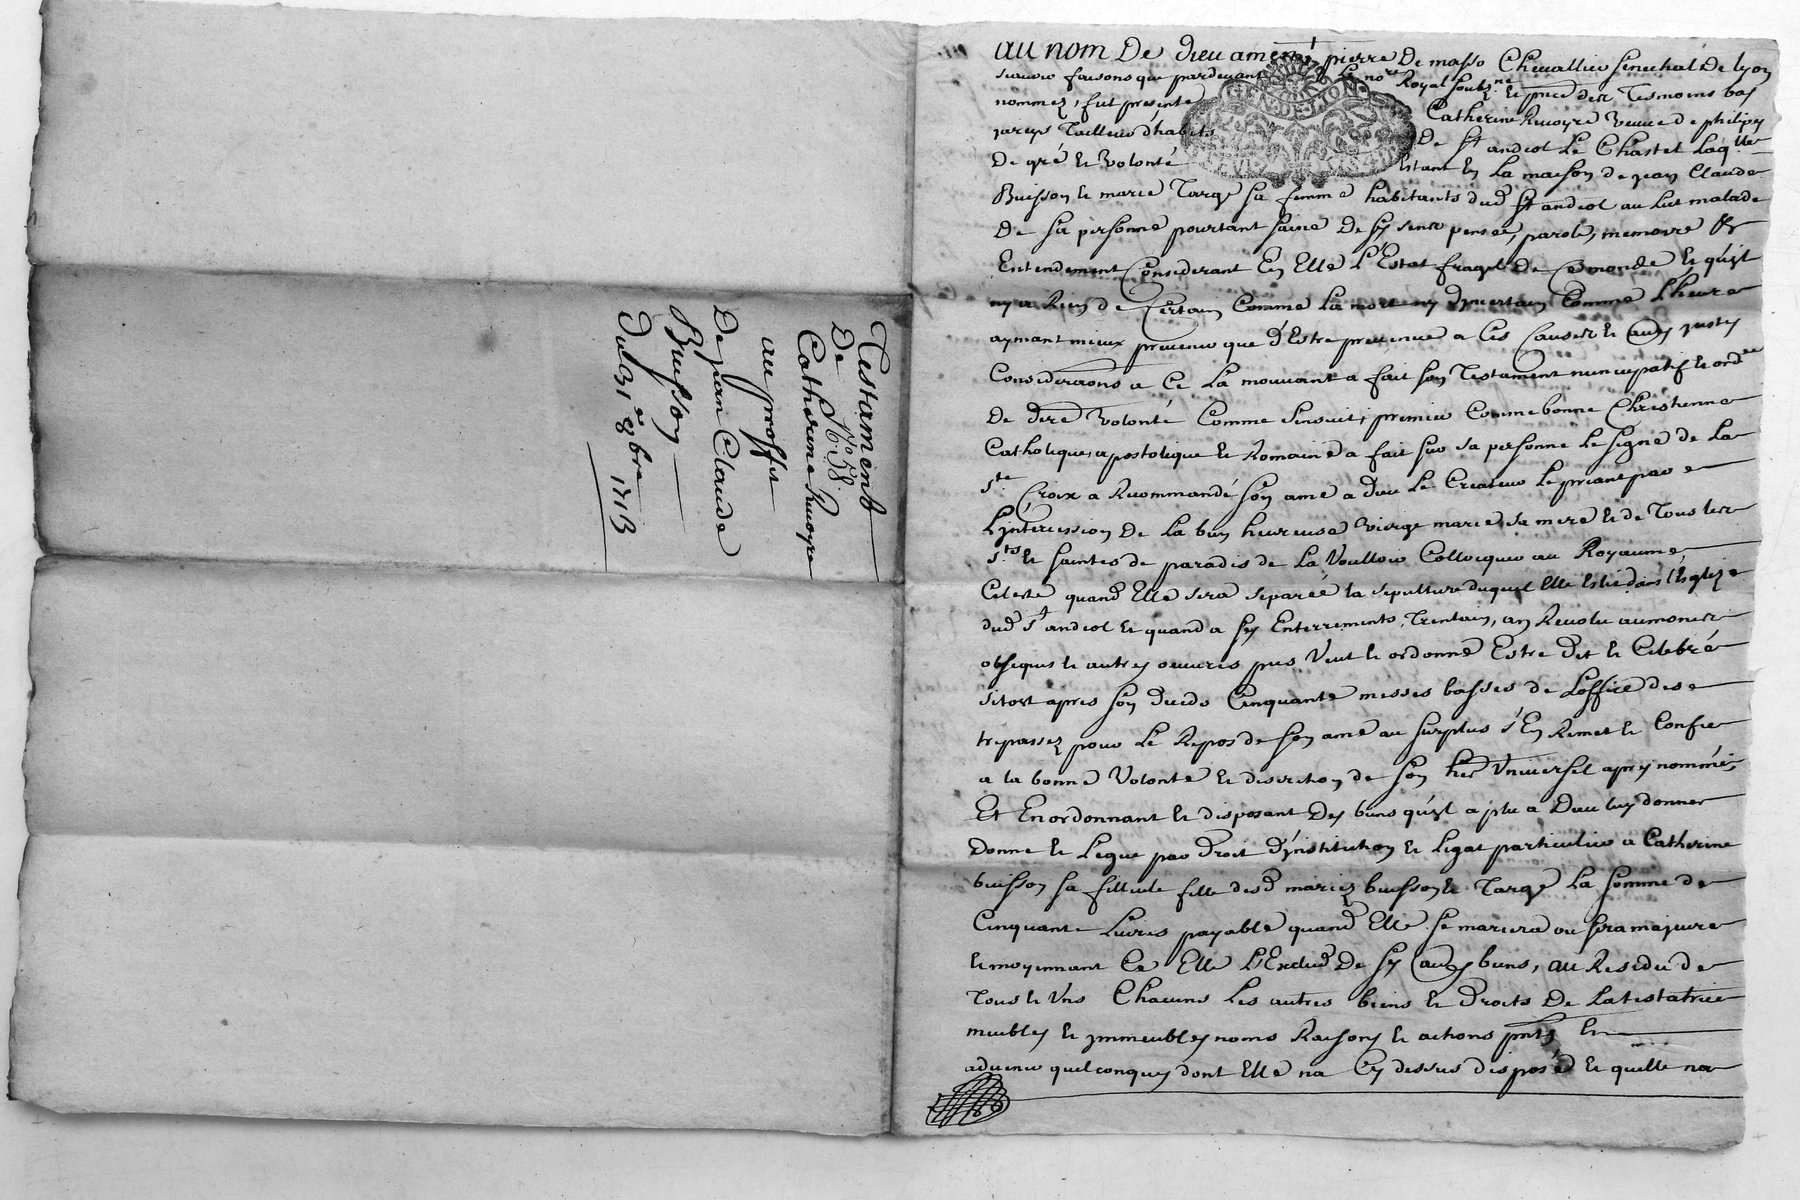 Testament
De
N° 58
Catherine Rivoyre
au proffit
De jean Claude
Buisson
Du 31e 8bre 1713
au nom De dieu amen pierre De masso Chevallier senechal De lyon
scavoir faisons que pardevant Le nore Royal soubzne et pnce des Tesmoins bas
nommez, fut presente Catherine Rivoyre veuve de philipes
jareys Tailleur d'habits De St andeol Le Chastel Laqlle
De gré et volonté Estant En La maison de jean Claude
Buisson et marie Targe sa femme habitants dud St andeol au lict malade
De sa personne pourtant saine De ses sens pensée, parole, memoire &
Entendement Considerant En Elle L'Estat fragil De Ce monde et quyl
ny a Rien de Certain Comme La mort ny dyncertain Comme L'heure
aymant mieux prevenir que d'Estre prevenue a Ces Causes et autres justes
Considerations a Ce La mouvant a fait son Testament nuncupatif et ordce
De dere volonté Comme sensuit, premier Comme bonne Chrestienne
Catholique, apostolique et Romaine a fait sur sa personne Le signe de La
Ste Croix a Recommandé son ame a Dieu Le Createur Le priant par
L'yntercession De La bien heureuse vierge marie sa mere et de Tous les
Sts et saintes de paradis de La voulloir Collocquer au Royaume
Celeste quand Elle sera separée la sepulture duquel Elle Eslit dans l'Eglize
dud St andeol et quand a ses Enterrements, Trentain, an Revolu aumones
obseques et autres œuvres pies veut et ordonne Estre dit et Celebré
sitost apres son deceds Cinquante messes basses de L'office des
trepassez pour Le Repos de son ame au surplus s'En Remet et Confie
a la bonne volonté et discretion de son her universel apres nommé,
Et En ordonnant et disposant Des biens quyl a plu a Dieu luy donner
Donne et Legue par droit d'ynstitution et Legat particulier a Catherine
buisson sa filleule fille desd mariez buisson et Targe La somme de
Cinquante Livres payable quand Elle se mariera ou sera majeure
et moyennant Ce Elle L'Exclud De ses autres biens, au Residu de
Tous et Uns Chacuns Les autres biens et droits De La testatrice
meubles et ymmeubles noms Raisons et actions pnts et
advenir quelconques dont Elle na Cy dessus disposé et quelle na